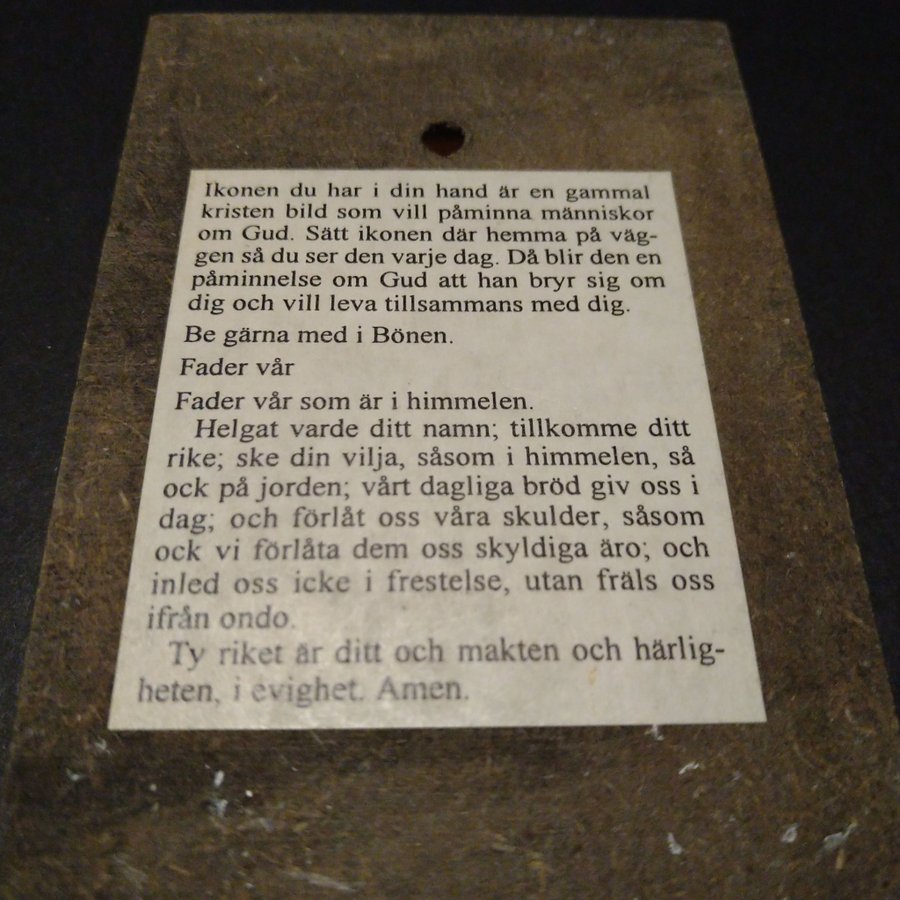 Ikonen du har i din hand är en gammal
kristen bild som vill påminna människor
om Gud. Sätt ikonen där hemma på väg-
gen så du ser den varje dag. Då blir den en
påminnelse om Gud att han bryr sig om
dig och vill leva tillsammans med dig.
Be gärna med i Bönen.
Fader vår
Fader vår som är i himmelen.
Helgat varde ditt namn; tillkomme ditt
rike; ske din vilja, såsom i himmelen, så
ock på jorden; vårt dagliga bröd giv oss i
dag; och förlåt oss våra skulder, såsom
ock vi förlåta dem oss skyldiga äro; och
inled oss icke i frestelse, utan fräls oss
ifrån ondo.
Ty riket är ditt och makten och härlig-
heten, i evighet. Amen.